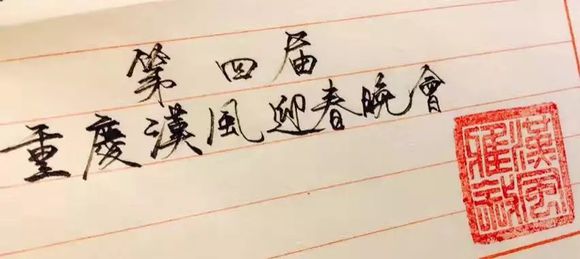 第四届
重慶漢風迎春晚會
漢風雅韵